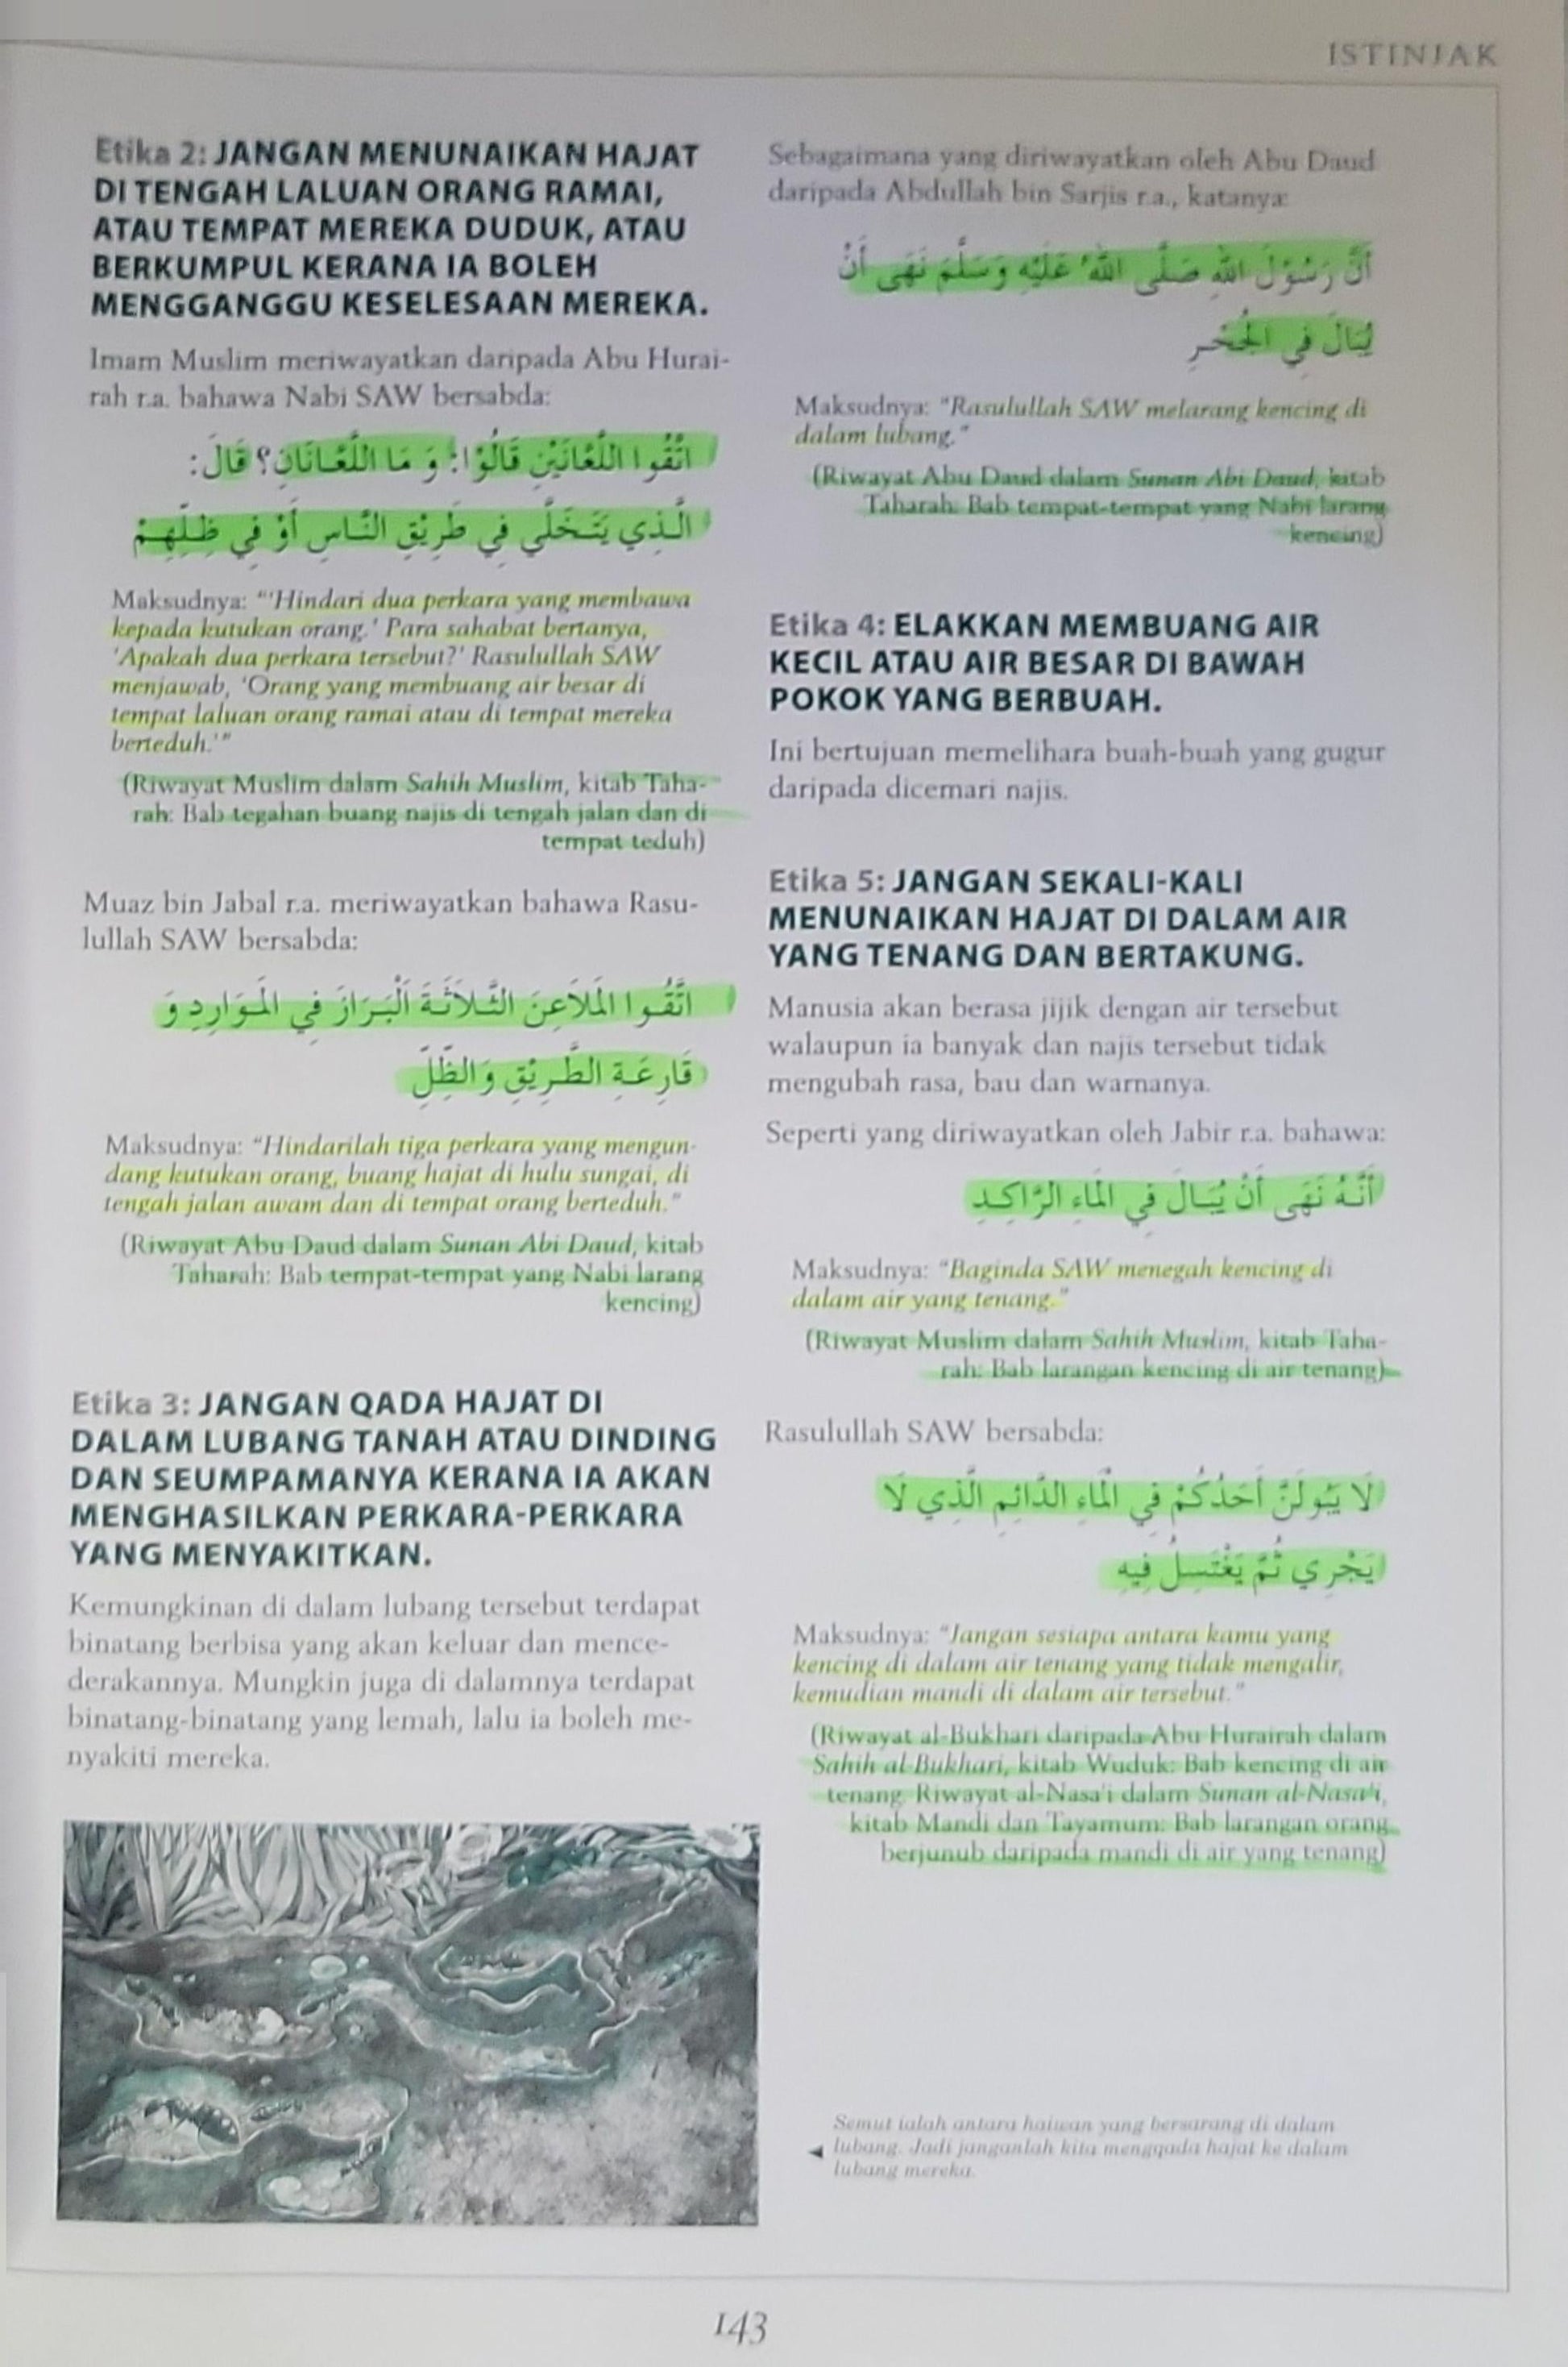 ISTINJAK
Etika 2: JANGAN MENUNAIKAN HAJAT
DI TENGAH LALUAN ORANG RAMAI,
ATAU TEMPAT MEREKA DUDUK, ATAU
BERKUMPUL KERANA IA BOLEH
MENGGANGGU KESELESAAN MEREKA.
Imam Muslim meriwayatkan daripada Abu Hurai-
rah r.a. bahawa Nabi SAW bersabda:
اتَّقُوا اللَّعَّانَيْنِ قَالُوْا: وَ مَا اللَّعَّانَانِ؟ قَالَ:
الَّذِي يَتَخَلَّى فِي طَرِيْقِ النَّاسِ أَوْ فِي ظِلِّهِمْ
Maksudnya: “‘Hindari dua perkara yang membawa
kepada kutukan orang.’ Para sahabat bertanya,
‘Apakah dua perkara tersebut?’ Rasulullah SAW
menjawab, ‘Orang yang membuang air besar di
tempat laluan orang ramai atau di tempat mereka
berteduh.’”
(Riwayat Muslim dalam Sahih Muslim, kitab Taha-
rah: Bab tegahan buang najis di tengah jalan dan di
tempat teduh)
Muaz bin Jabal r.a. meriwayatkan bahawa Rasu-
lullah SAW bersabda:
اتَّقُوا الْمَلَاعِنَ الثَّلَاثَةَ اَلْبَرَازَ فِي الْمَوَارِدِ وَ
قَارِعَةِ الطَّرِيْقِ وَالظِّلِّ
Maksudnya: “Hindarilah tiga perkara yang mengun-
dang kutukan orang, buang hajat di hulu sungai, di
tengah jalan awam dan di tempat orang berteduh.”
(Riwayat Abu Daud dalam Sunan Abi Daud, kitab
Taharah: Bab tempat-tempat yang Nabi larang
kencing)
Etika 3: JANGAN QADA HAJAT DI
DALAM LUBANG TANAH ATAU DINDING
DAN SEUMPAMANYA KERANA IA AKAN
MENGHASILKAN PERKARA-PERKARA
YANG MENYAKITKAN.
Kemungkinan di dalam lubang tersebut terdapat
binatang berbisa yang akan keluar dan mence-
derakannya. Mungkin juga di dalamnya terdapat
binatang-binatang yang lemah, lalu ia boleh me-
nyakiti mereka.
Sebagaimana yang diriwayatkan oleh Abu Daud
daripada Abdullah bin Sarjis r.a., katanya:
أَنَّ رَسُوْلَ اللهِ صَلَّى اللهُ عَلَيْهِ وَسَلَّمَ نَهَى أَنْ
يُبَالَ فِي الْجُحْرِ
Maksudnya: “Rasulullah SAW melarang kencing di
dalam lubang.”
(Riwayat Abu Daud dalam Sunan Abi Daud, kitab
Taharah: Bab tempat-tempat yang Nabi larang
kencing)
Etika 4: ELAKKAN MEMBUANG AIR
KECIL ATAU AIR BESAR DI BAWAH
POKOK YANG BERBUAH.
Ini bertujuan memelihara buah-buah yang gugur
daripada dicemari najis.
Etika 5: JANGAN SEKALI-KALI
MENUNAIKAN HAJAT DI DALAM AIR
YANG TENANG DAN BERTAKUNG.
Manusia akan berasa jijik dengan air tersebut
walaupun ia banyak dan najis tersebut tidak
mengubah rasa, bau dan warnanya.
Seperti yang diriwayatkan oleh Jabir r.a. bahawa:
أَنَّهُ نَهَى أَنْ يُبَالَ فِي الْمَاءِ الرَّاكِدِ
Maksudnya: “Baginda SAW menegah kencing di
dalam air yang tenang.”
(Riwayat Muslim dalam Sahih Muslim, kitab Taha-
rah: Bab larangan kencing di air tenang)
Rasulullah SAW bersabda:
لَا يَبُولَنَّ أَحَدُكُمْ فِي الْمَاءِ الدَّائِمِ الَّذِي لَا
يَجْرِي ثُمَّ يَغْتَسِلُ فِيهِ
Maksudnya: “Jangan sesiapa antara kamu yang
kencing di dalam air tenang yang tidak mengalir,
kemudian mandi di dalam air tersebut.”
(Riwayat al-Bukhari daripada Abu Hurairah dalam
Sahih al-Bukhari, kitab Wuduk: Bab kencing di air
tenang. Riwayat al-Nasa'i dalam Sunan al-Nasa'i,
kitab Mandi dan Tayamum: Bab larangan orang
berjunub daripada mandi di air yang tenang)
Semut ialah antara haiwan yang bersarang di dalam
lubang. Jadi janganlah kita mengqada hajat ke dalam
lubang mereka.
143